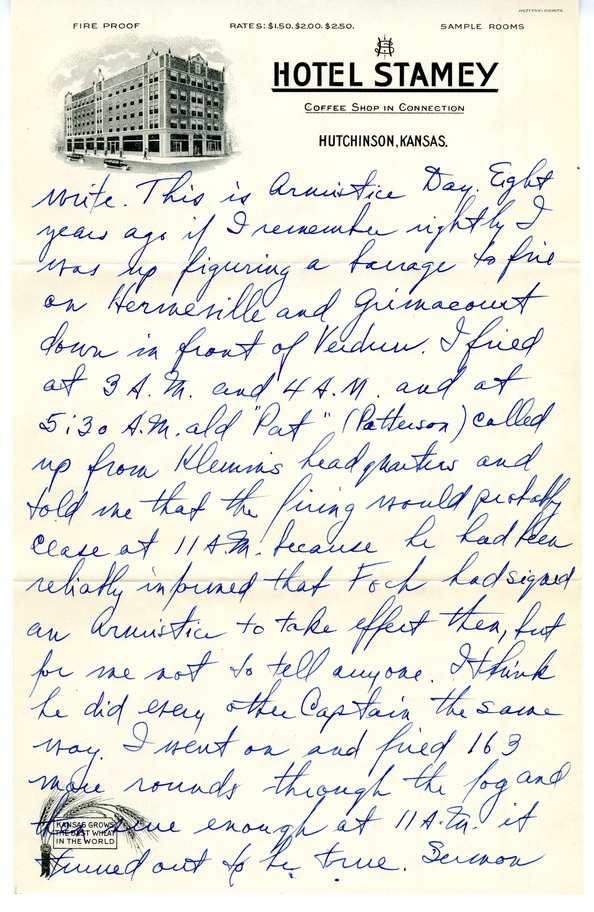 WESTERN-WICHITA
FIRE PROOF RATES: $1.50. $2.00. $2.50. SAMPLE ROOMS
HS
HOTEL STAMEY
COFFEE SHOP IN CONNECTION
HUTCHINSON, KANSAS.
write. This is Armistice Day. Eight
years ago if I remember rightly I
was up figuring a barrage to fire
on Hermeville and Grimacourt
down in front of Verdun. I fired
at 3 A.M. and 4 A.M. and at
5:30 A.M. old "Pat" (Patterson) called
up from Klemms headquarters and
told me that the firing would probably
cease at 11 A.M. because he had been
reliably informed that Foch had signed
an Armistice to take effect then, but
for me not to tell anyone. I think
he did every other Captain the same
way. I went on and fired 163
more rounds through the fog and
then sure enough at 11 A.M. it
turned out to be true. Sermon
KANSAS GROWS
THE BEST WHEAT
IN THE WORLD